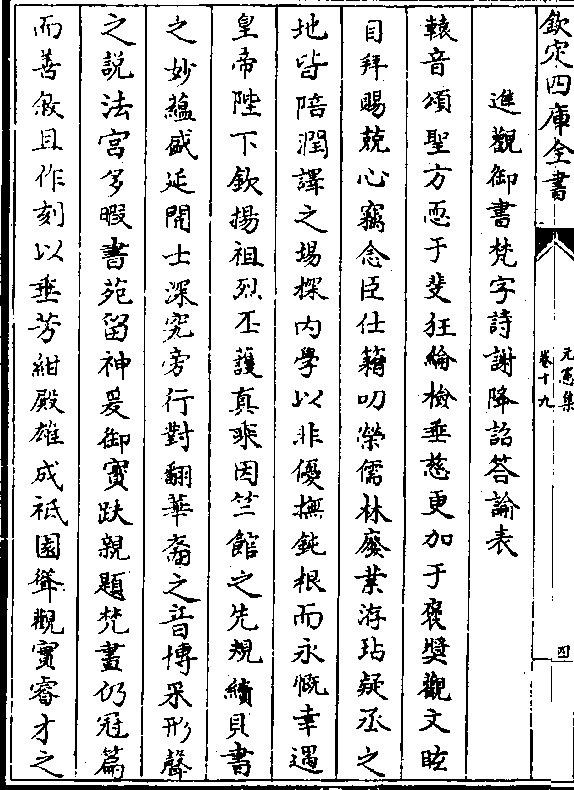 欽定四庫全書
元憲集
卷十九
四
進觀御書梵字詩謝降詔答諭表
轅音頌聖方恧于斐狂綸檢垂慈更加于褒奬觀文眩
目拜賜兢心竊念臣仕籍叨榮儒林廢業洊玷疑丞之
地皆陪潤譯之場探内學以非優撫鈍根而永慨幸遇
皇帝陛下欽揚祖烈丕護真乘因竺館之先規續貝書
之妙藴盛延開士深究旁行對翻華裔之音博采形聲
之説法宫多暇書苑留神爰御寳趺親題梵畫仍冠篇
而善敘且作刻以垂芳紺殿雄成祗園聳觀寳睿才之